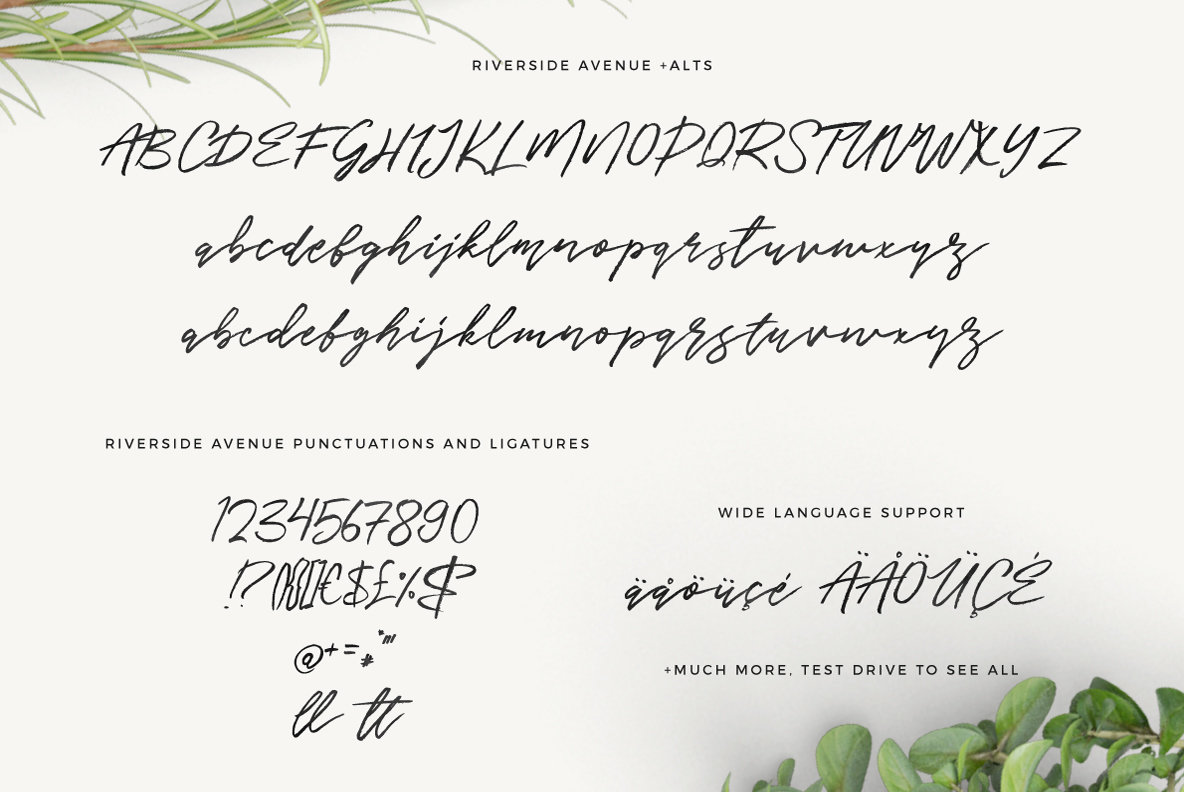 RIVERSIDE AVENUE +ALTS
ABCDEFGHIJKLMNOPQRSTUVWXYZ
abcdefghijklmnopqrstuvwxyz
abcdefghijklmnopqrstuvwxyz
RIVERSIDE AVENUE PUNCTUATIONS AND LIGATURES
1234567890
@+=#*"'
ll tt
WIDE LANGUAGE SUPPORT
äåöüçé ÄÅÖÜÇÉ
+MUCH MORE, TEST DRIVE TO SEE ALL